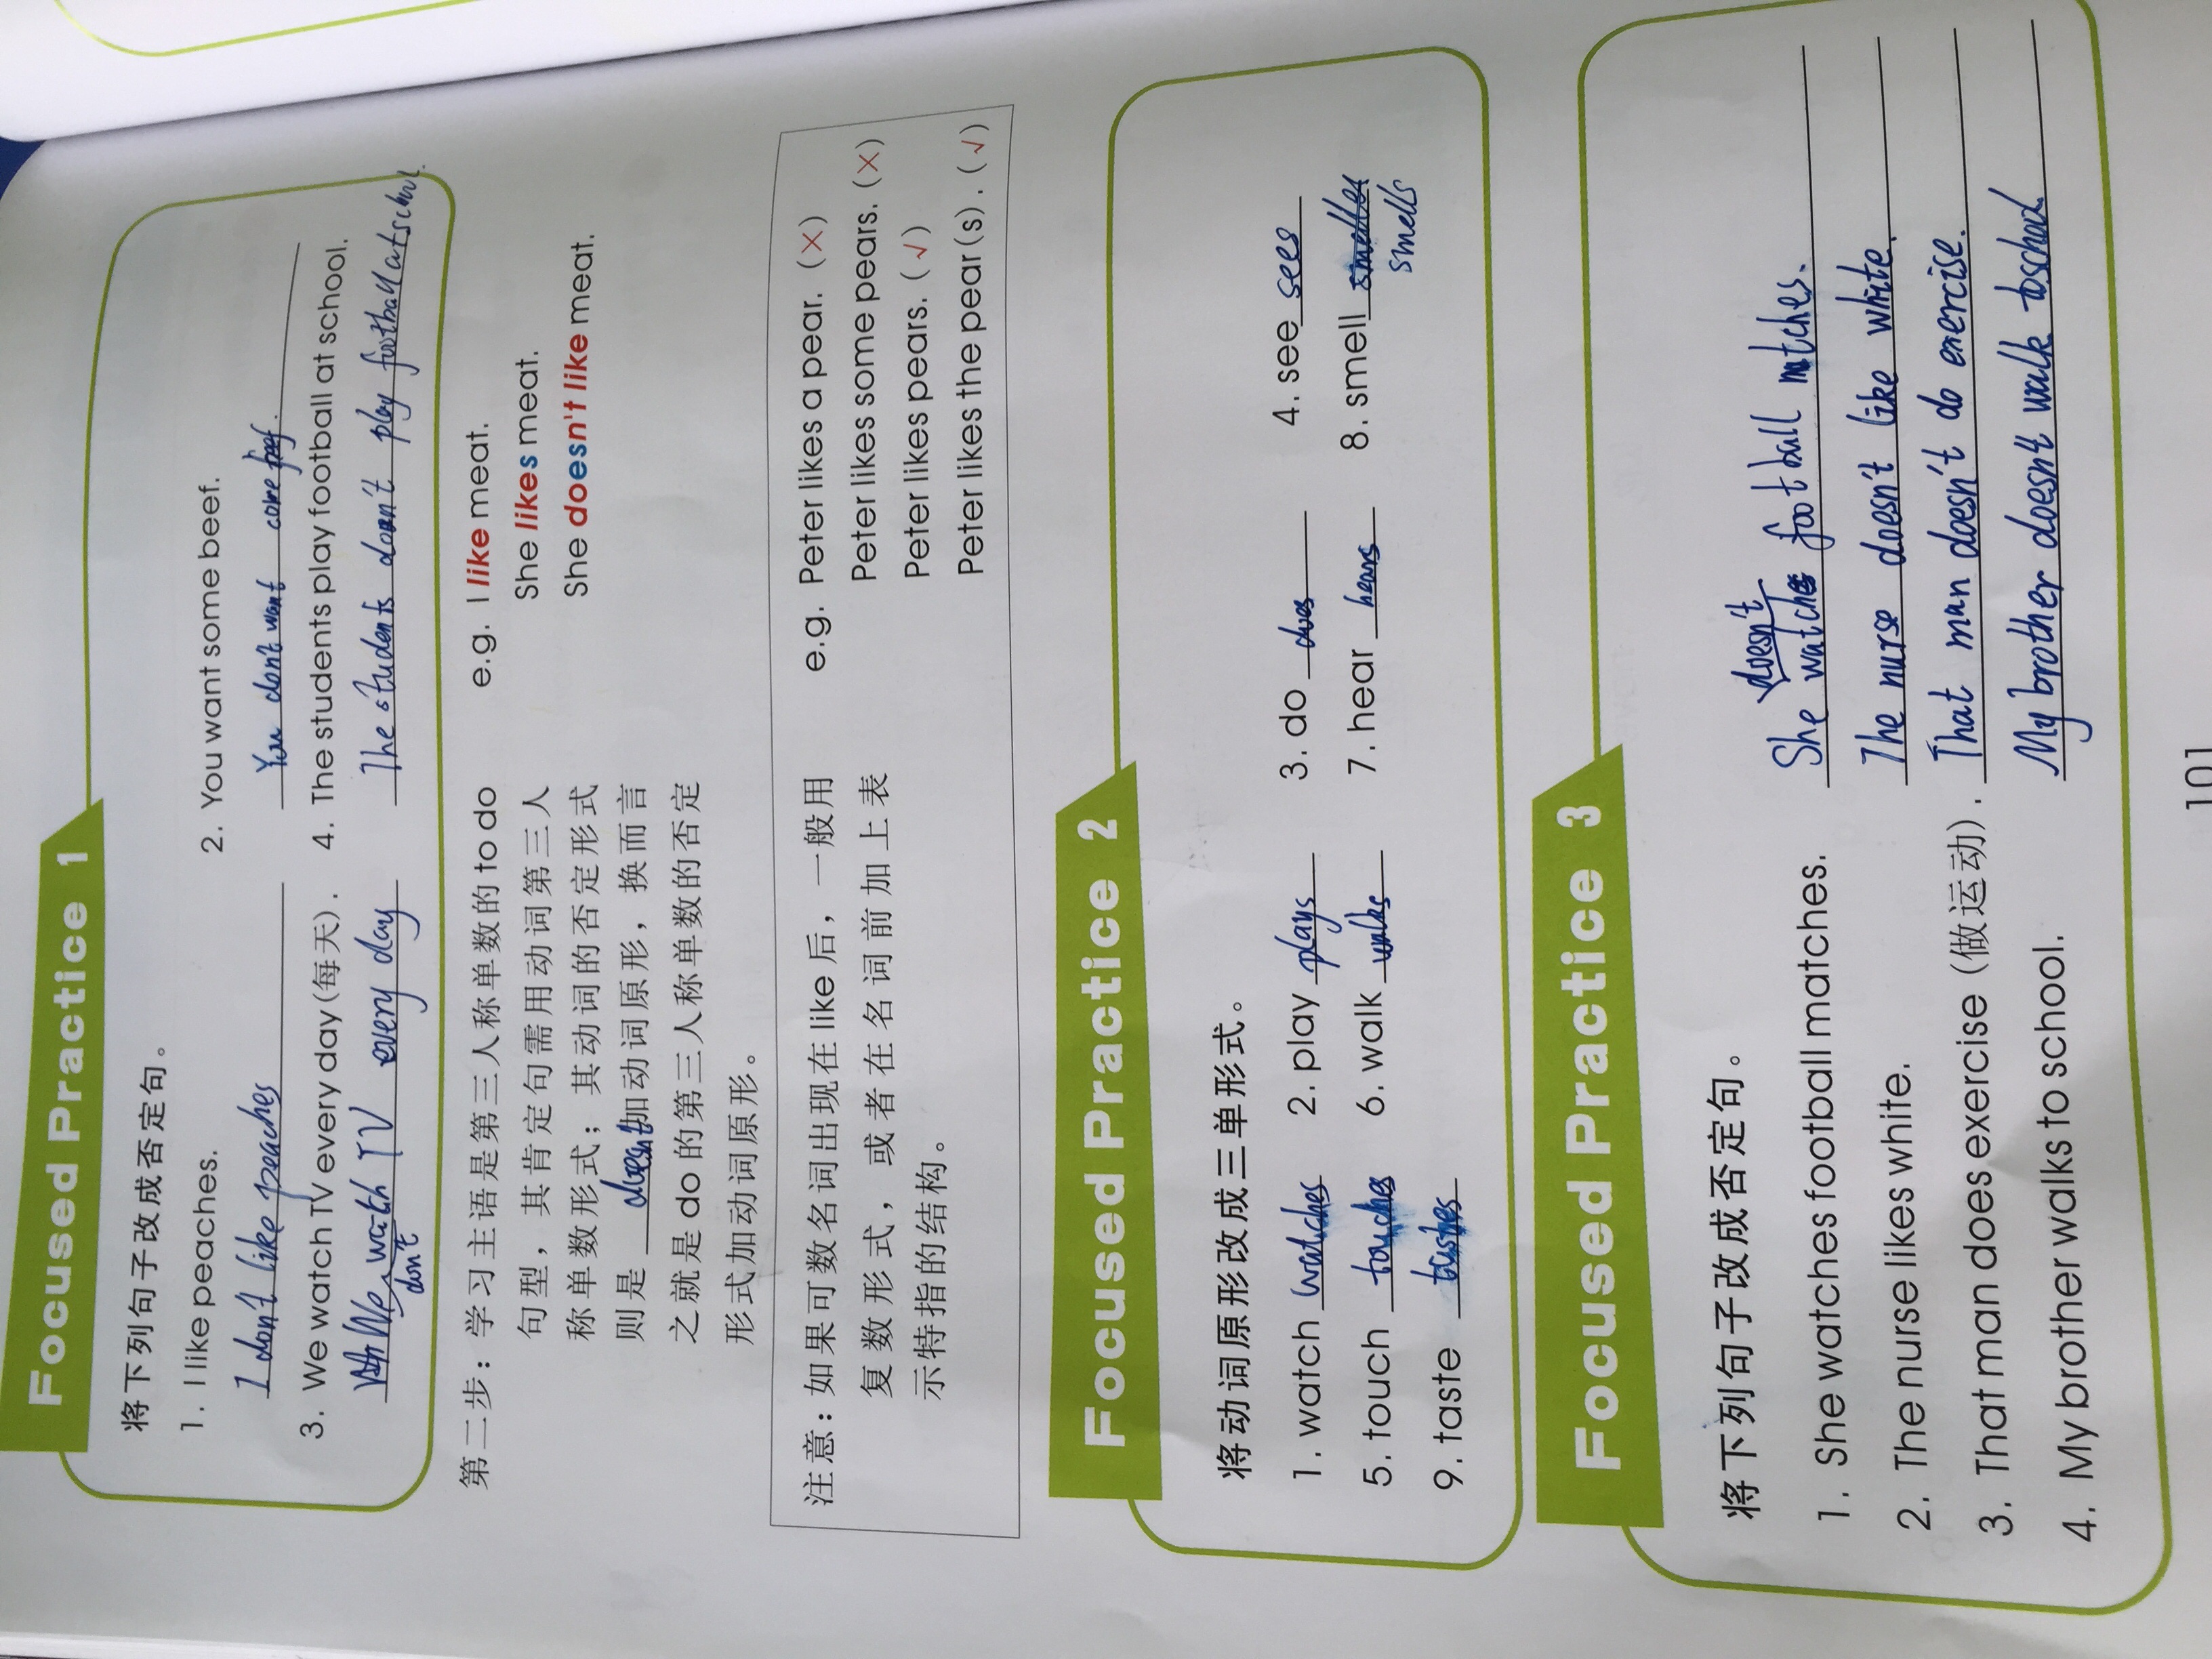 Focused Practice 1
将下列句子改成否定句。
1. I like peaches.
2. You want some beef.
I don't like peaches
You don't want
3. We watch TV every day (每天).
4. The students play football at school.
We watch TV every day
don't
The students don't play football at school.
第二步：学习主语是第三人称单数的 to do
句型，其肯定句需用动词第三人
称单数形式；其动词的否定形式
则是 doesn't 加动词原形，换而言
之就是 do 的第三人称单数的否定
形式加动词原形。
e.g. I like meat.
She likes meat.
She doesn't like meat.
注意：如果可数名词出现在 like 后，一般用
复数形式，或者在名词前加上表
示特指的结构。
e.g. Peter likes a pear. (×)
Peter likes some pears. (×)
Peter likes pears. (√)
Peter likes the pear(s). (√)
Focused Practice 2
将动词原形改成三单形式。
1. watch watches 2. play plays 3. do does 4. see sees
5. touch touches 6. walk walks 7. hear hears 8. smell
smells
9. taste
Focused Practice 3
将下列句子改成否定句。
doesn't
1. She watches football matches. She watches football matches.
2. The nurse likes white. The nurse doesn't like white.
3. That man does exercise (做运动). That man doesn't do exercise.
4. My brother walks to school. My brother doesn't walk to school
101